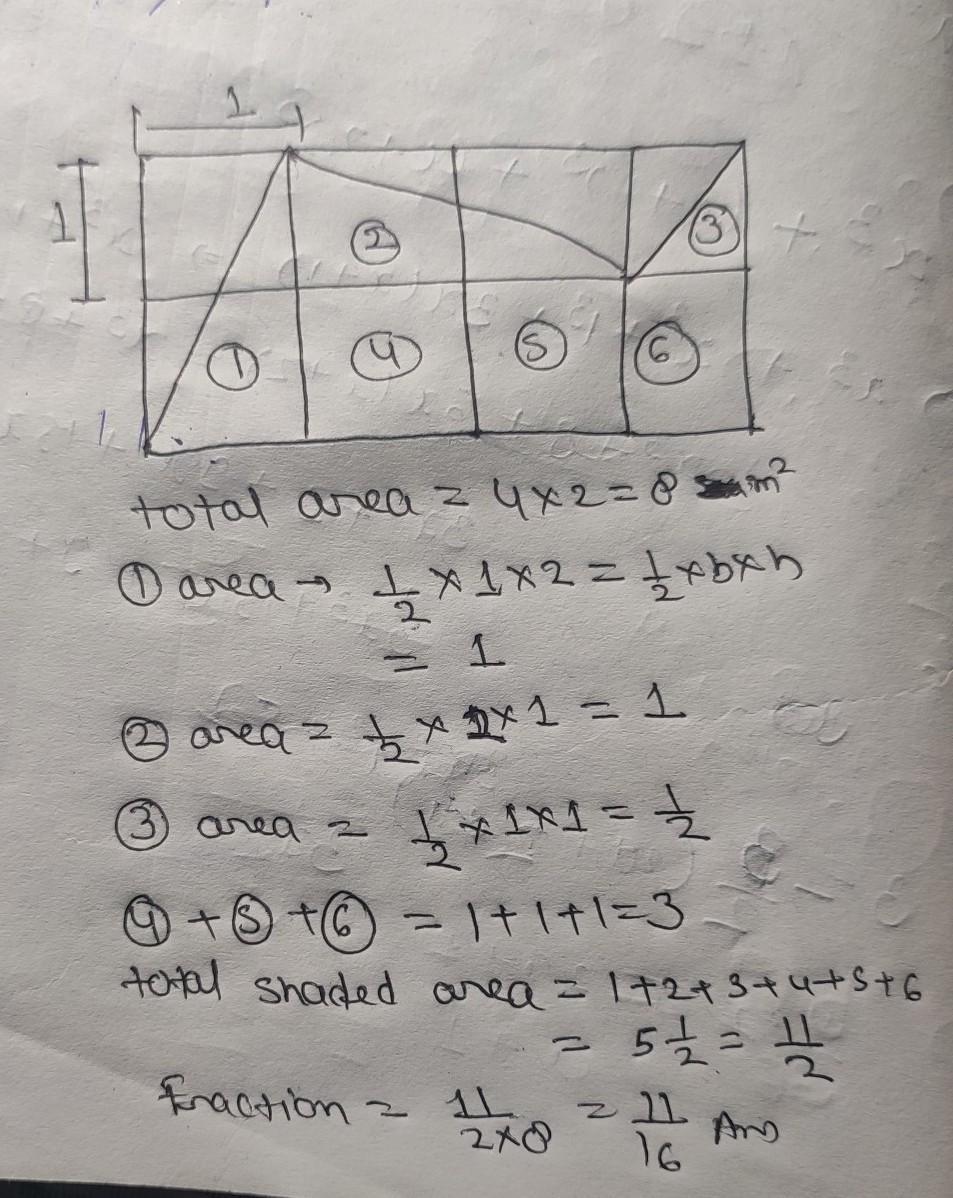 1
1
②
③
①
④
⑤
⑥
total area = 4×2 = 8 m²
① area → 1/2 × 1×2 = 1/2 ×b×h
= 1
② area = 1/2 × 2×1 = 1
③ area = 1/2 ×1×1 = 1/2
④ + ⑤ + ⑥ = 1+1+1=3
total shaded area = 1+2+3+4+5+6
= 5 1/2 = 11/2
Fraction = 11/2×8 = 11/16 Ans